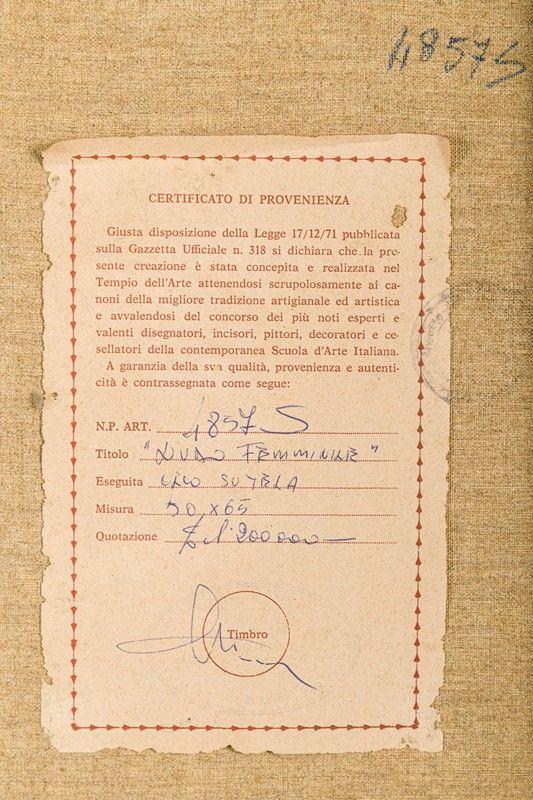 4857S
CERTIFICATO DI PROVENIENZA
Giusta disposizione della Legge 17/12/71 pubblicata
sulla Gazzetta Ufficiale n. 318 si dichiara che la pre-
sente creazione è stata concepita e realizzata nel
Tempio dell'Arte attenendosi scrupolosamente ai ca-
noni della migliore tradizione artigianale ed artistica
e avvalendosi del concorso dei più noti esperti e
valenti disegnatori, incisori, pittori, decoratori e ce-
sellatori della contemporanea Scuola d'Arte Italiana.
A garanzia della sua qualità, provenienza e autenti-
cità è contrassegnata come segue:
N.P. ART. 4857 S
Titolo "NUDO FEMMINILE"
Eseguita OLIO SU TELA
Misura 50 x 65
Quotazione
Timbro